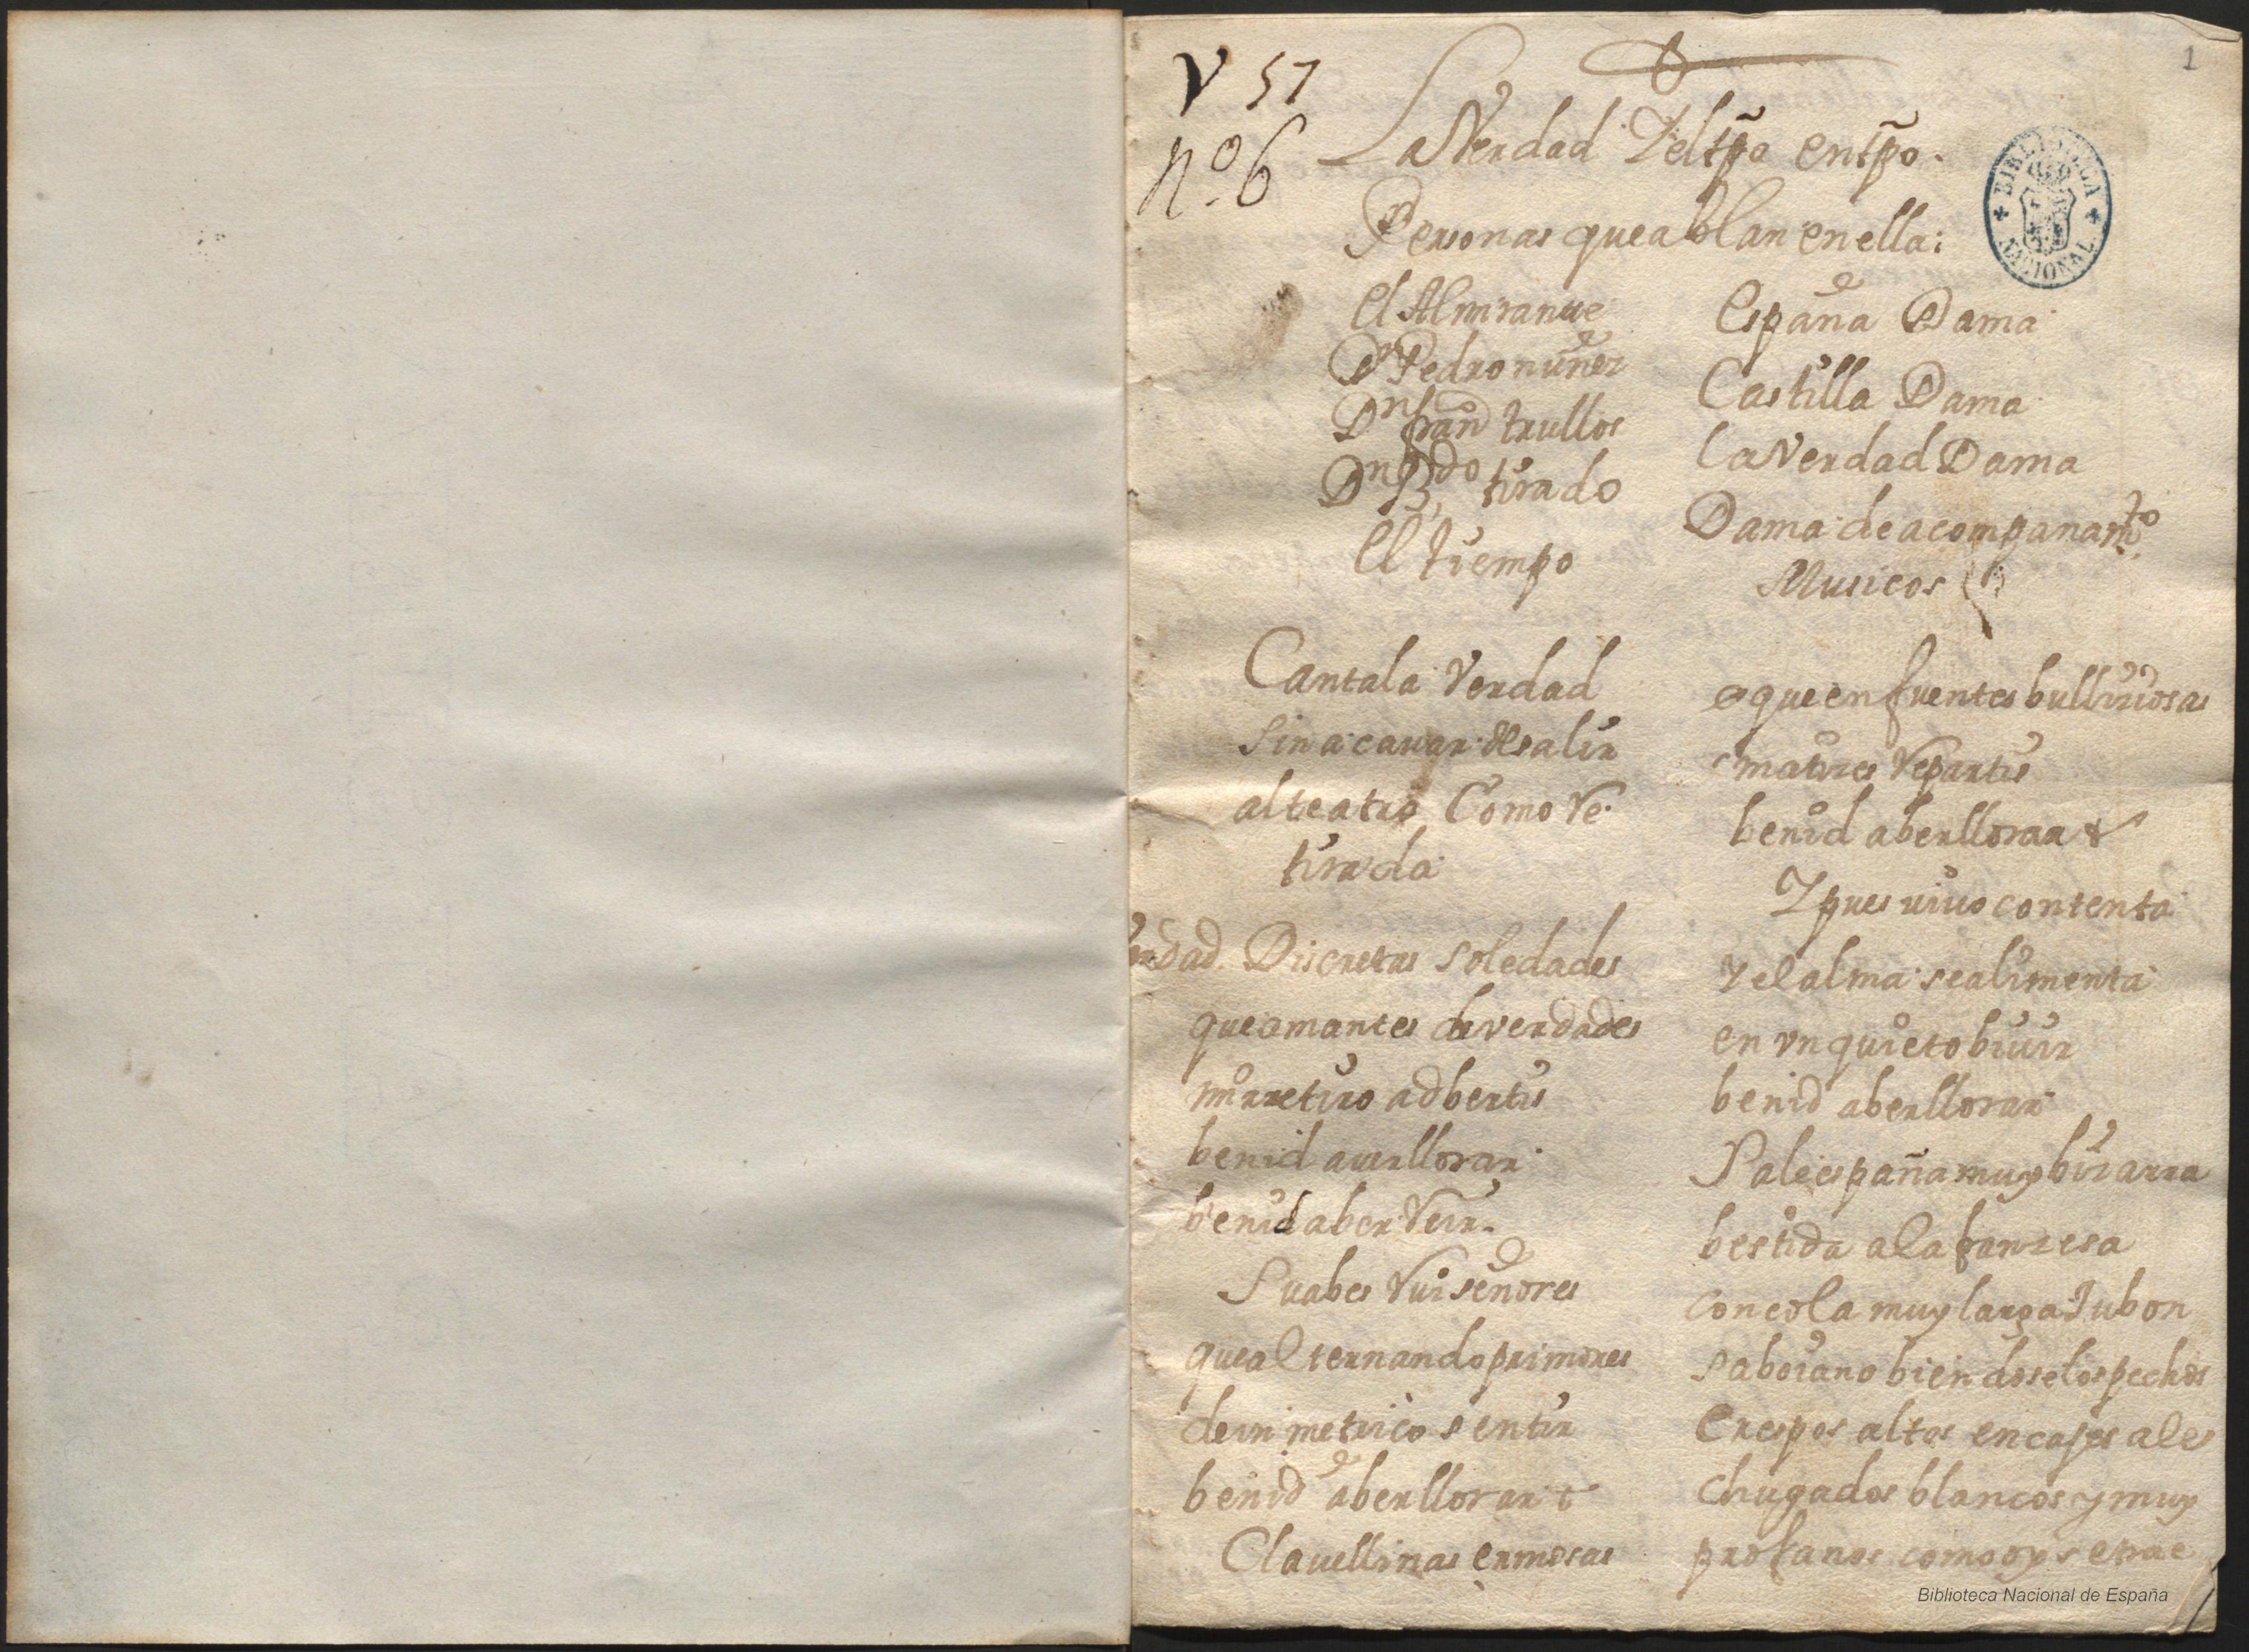 V 57
nº 6
1
La Verdad Y el tpo en tpo.
BIBLIOTECA NACIONAL
Personas que ablan en ella:
El Almirante
Dn Pedro nuñez
Dn fran trullos
tirado
El tiempo
España Dama
Castilla Dama
la Verdad Dama
Dama de acompanamto
Musicos
Canta la Verdad
sin acavar de salir
al teatro Como Re
tirada
Verdad. Discretas soledades
que amantes de verdades
mi rretiro adbertis
benid a uer llorar
benid a ber Reir.
Suabes Ruiseñores
que alternando primores
de un metrico sentir
benid a ber llorar
Clauellinas ermosas
que en fuentes bulliciosas
matices Repartis
benid a ber llorar &
Y pues uiuo contenta
y el alma se alimenta
en vn quieto biuir
benid a ber llorar
Sale españa muy bizarra
bestida a la franzesa
con cola muy larga Jubon
saboiano biendose los pechos
Crespos altos encajes ale
chugados blancos y muy
profanos como oy se trae
Biblioteca Nacional de España